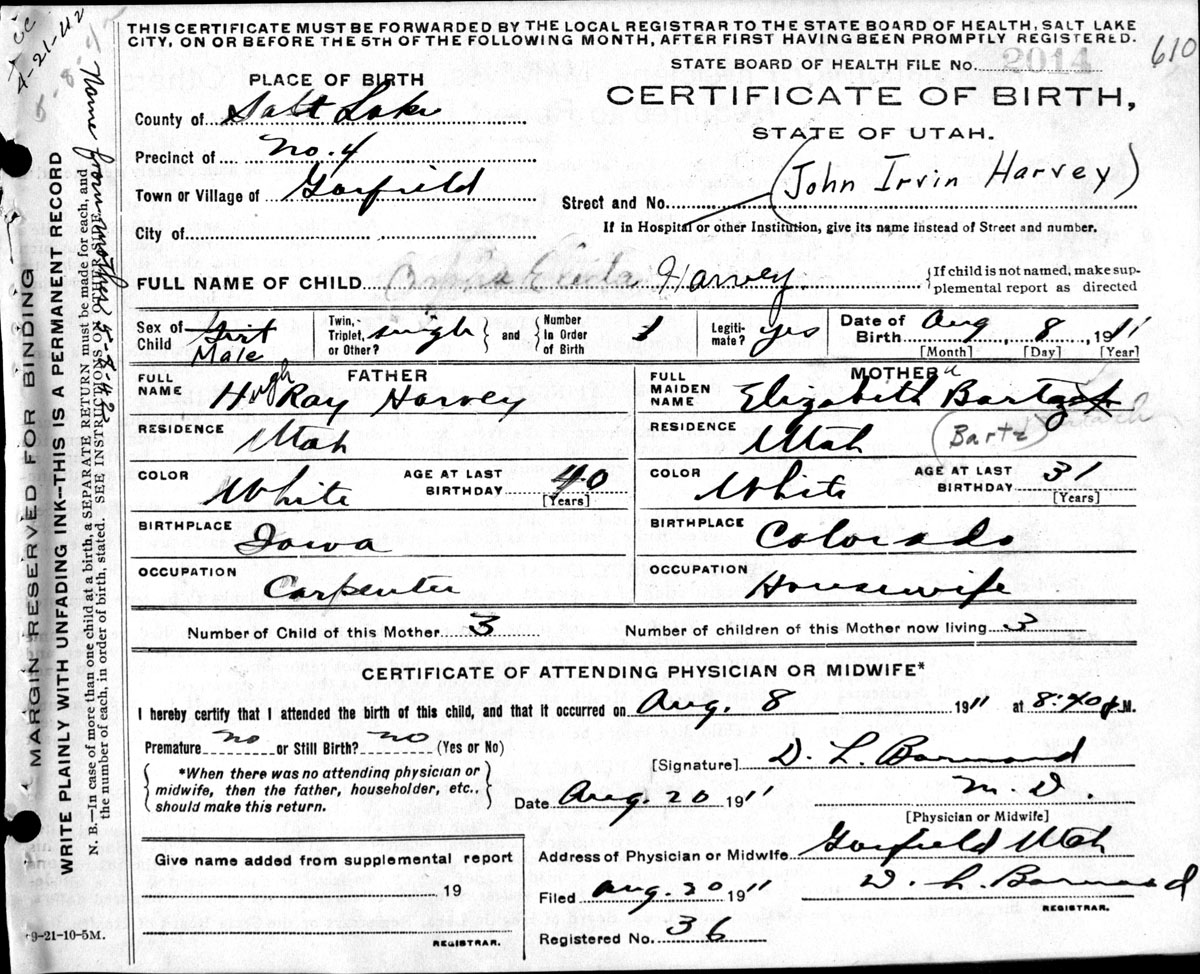 THIS CERTIFICATE MUST BE FORWARDED BY THE LOCAL REGISTRAR TO THE STATE BOARD OF HEALTH, SALT LAKE
CITY, ON OR BEFORE THE 5TH OF THE FOLLOWING MONTH, AFTER FIRST HAVING BEEN PROMPTLY REGISTERED.
STATE BOARD OF HEALTH FILE NO. 2014
610
PLACE OF BIRTH
CERTIFICATE OF BIRTH,
STATE OF UTAH.
County of Salt Lake
Precinct of No. 4
Town or Village of Garfield
City of
(John Irvin Harvey)
Street and No.
If in Hospital or other Institution, give its name instead of Street and number.
FULL NAME OF CHILD Harvey.
{If child is not named, make sup-
plemental report as directed
Sex of Child Girl Male
Twin, Triplet, or Other? single
} and {
Number In Order of Birth 1
Legiti-mate? yes
Date of Birth Aug 8, 1911
[Month] [Day] [Year]
FATHER
FULL NAME Hugh Ray Harvey
RESIDENCE Utah
COLOR White
AGE AT LAST BIRTHDAY 40
[Years]
BIRTHPLACE Iowa
OCCUPATION Carpenter
MOTHER
FULL MAIDEN NAME Elizabeth
RESIDENCE Utah
(Bartz)
COLOR White
AGE AT LAST BIRTHDAY 31
[Years]
BIRTHPLACE Colorado
OCCUPATION Housewife
Number of Child of this Mother 3
Number of children of this Mother now living 3
CERTIFICATE OF ATTENDING PHYSICIAN OR MIDWIFE*
I hereby certify that I attended the birth of this child, and that it occurred on Aug. 8 1911 at 8:40 P.M.
Premature no or Still Birth? no (Yes or No)
{*When there was no attending physician or
midwife, then the father, householder, etc.,
should make this return.}
[Signature] D. L. Barnard
M. D.
Date Aug. 20 1911
[Physician or Midwife]
Give name added from supplemental report
19
REGISTRAR.
Address of Physician or Midwife Garfield Utah
Filed Aug. 20 1911
D. L. Barnard
REGISTRAR.
Registered No. 36
9-21-10-5M.
MARGIN RESERVED FOR BINDING
WRITE PLAINLY WITH UNFADING INK—THIS IS A PERMANENT RECORD
N. B.—In case of more than one child at a birth, a SEPARATE RETURN must be made for each, and
the number of each, in order of birth, stated. SEE INSTRUCTIONS ON OTHER SIDE.
Name from mother 5-8-42